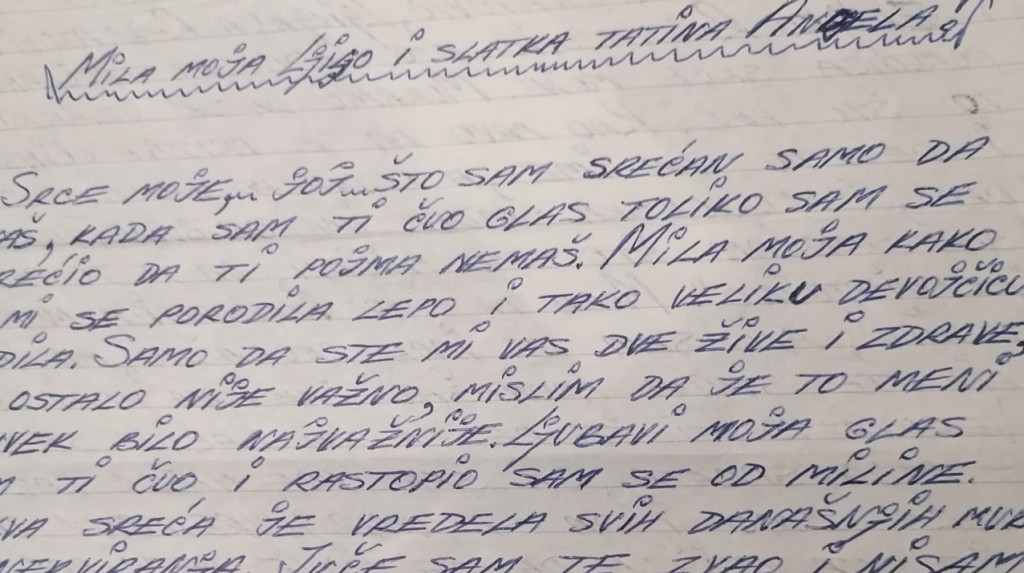 MILA MOJA LJIGO I SLATKA TATINA ANĐELA
SRCE MOJE,,, JOJ...ŠTO SAM SREĆAN SAMO DA
AŠ, KADA SAM TI ČUO GLAS TOLIKO SAM SE
REĆIO DA TI POJMA NEMAŠ. MILA MOJA KAKO
MI SE PORODILA LEPO I TAKO VELIKU DEVOJČICU
DILA. SAMO DA STE MI VAS DVE ŽIVE I ZDRAVE,
OSTALO NIJE VAŽNO, MISLIM DA JE TO MENI
VEK BILO NAJVAŽNIJE. LJUBAVI MOJA GLAS
M TI ČUO I RASTOPIO SAM SE OD MILINE.
VA SREĆA JE VREDELA SVIH DANAŠNJIH MUK
NERVIRANJA. JUČE SAM TE ZVAO I NISAM